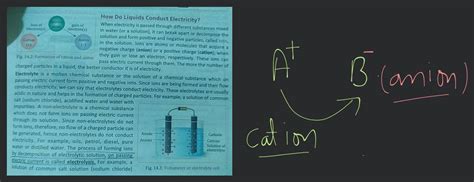 How Do Liquids Conduct Electricity?
When electricity is passed through different substances mixed
in water (or a solution), it can break apart or decompose the
solution and form positive and negative particles, called ions
in the solution. Ions are atoms or molecules that acquire a
negative charge (anion) or a positive charge (cation), when
they gain or lose an electron, respectively. These ions can
pass electric current through them. The more the number of
charged particles in a liquid, the better conductor it is of electricity.
Electrolyte is a molten chemical substance or the solution of a chemical substance which on
passing electric current form positive and negative ions. Since ions are being formed and thus
conducts electricity, we can say that electrolytes conduct electricity. These electrolytes are usually
acidic in nature and helps in the formation of charged particles. For example, a solution of common
salt (sodium chloride), acidified water and water with
impurities. A non-electrolyte is a chemical substance
which does not form ions on passing electric current
through its solution. Since non-electrolytes do not
form ions, therefore, no flow of a charged particle can
be generated. Hence non-electrolytes do not conduct
electricity. For example, oils, petrol, diesel, pure
water or distilled water. The process of forming ions
by decomposition of electrolytic solution, on passing
electric current is called electrolysis. For example, a
solution of common salt solution (sodium chloride)
Anode
Cathode
A+
B- (anion)
cation